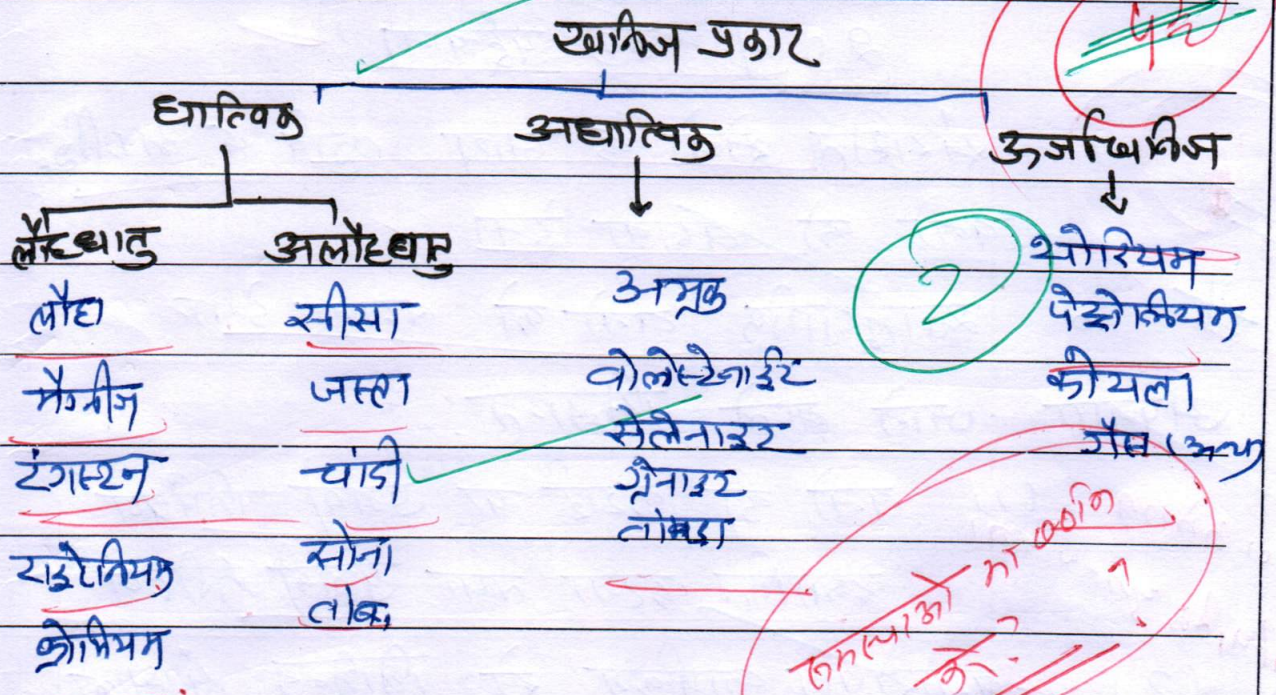 खनिज प्रकार
धात्विक
अधात्विक
ऊर्जाखनिज
लौह धातु
अलौह धातु
लौहा
मैगनीज
टंगस्टन
टाइटेनियम
क्रोमियम
सीसा
जस्ता
चांदी
सोना
तांबा
अभ्रक
वोलेस्टेनाईट
सेलेनाइट
ग्रेनाइट
तांबडा
थोरियम
पेट्रोलियम
कोयला
गैस (अन्य)
2
समस्याओं का वर्णन
करें ?
?